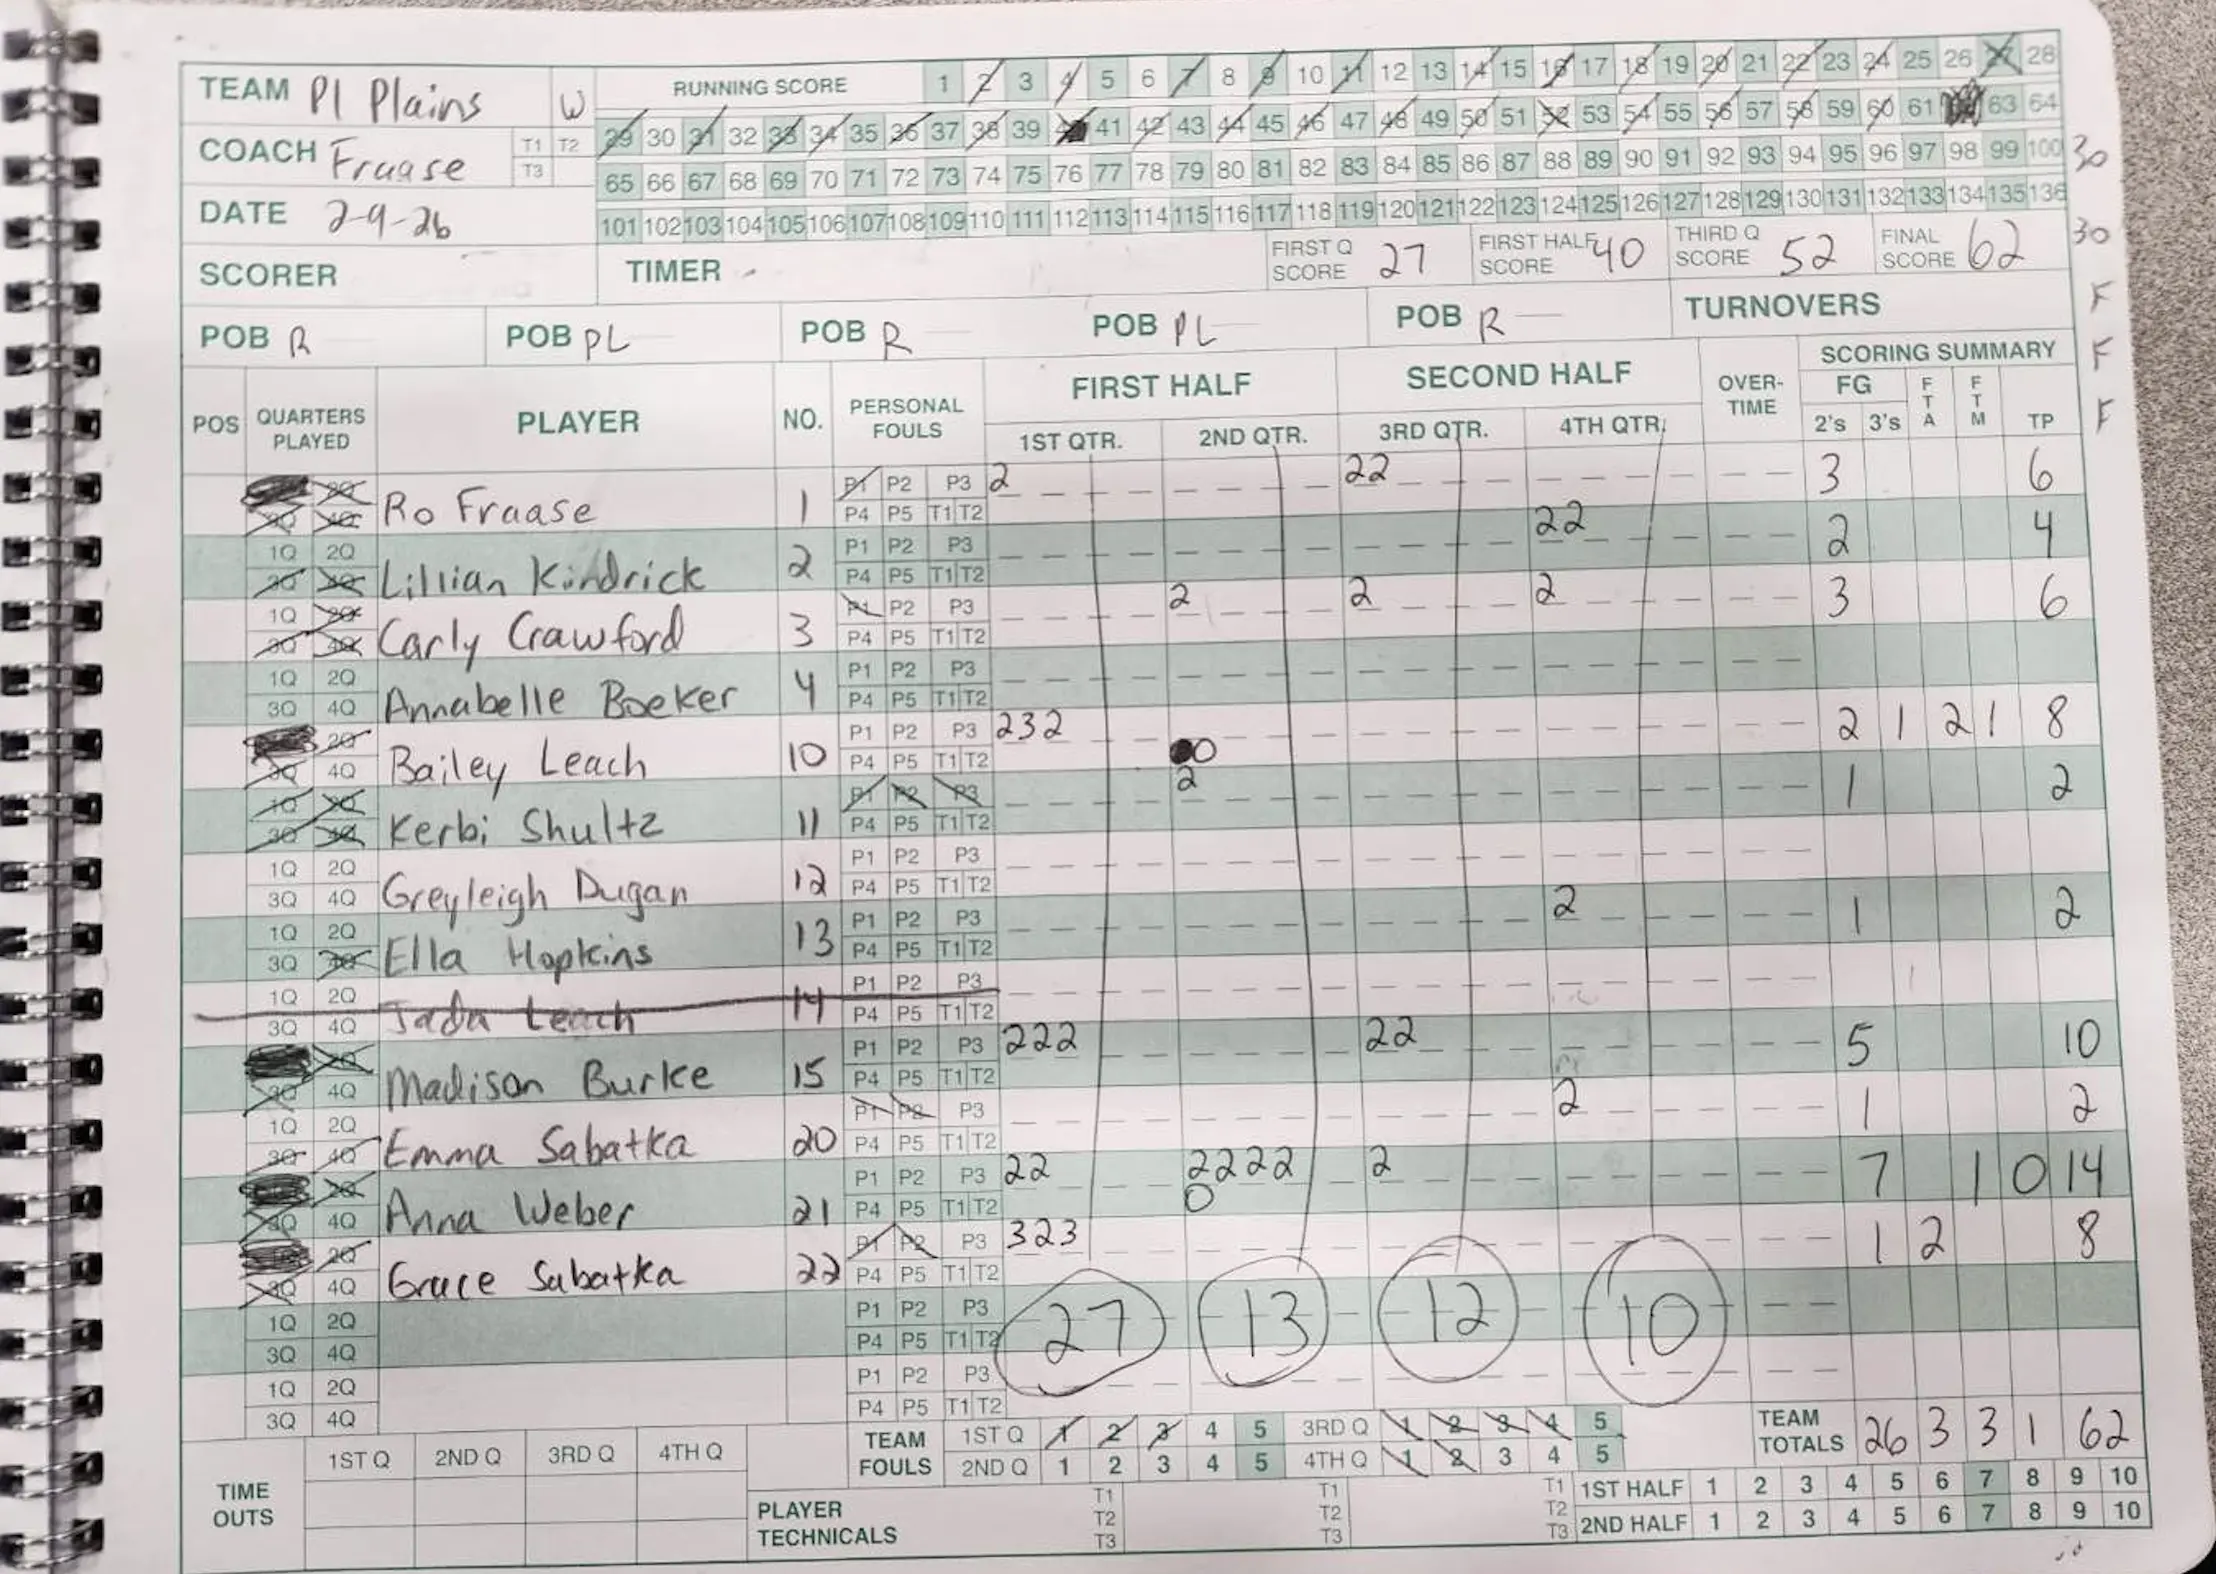 TEAM Pl Plains W RUNNING SCORE 1 2 3 4 5 6 7 8 9 10 11 12 13 14 15 16 17 18 19 20 21 22 23 24 25 26 27 28
29 30 31 32 33 34 35 36 37 38 39 40 41 42 43 44 45 46 47 48 49 50 51 52 53 54 55 56 57 58 59 60 61 63 64
COACH Fraase T1 T2 T3
65 66 67 68 69 70 71 72 73 74 75 76 77 78 79 80 81 82 83 84 85 86 87 88 89 90 91 92 93 94 95 96 97 98 99 100 30
DATE 2-9-26
101 102 103 104 105 106 107 108 109 110 111 112 113 114 115 116 117 118 119 120 121 122 123 124 125 126 127 128 129 130 131 132 133 134 135 136
SCORER TIMER FIRST Q SCORE 27 FIRST HALF SCORE 40 THIRD Q SCORE 52 FINAL SCORE 62 30
POB R POB PL POB R POB PL POB R TURNOVERS F
POS QUARTERS PLAYED PLAYER NO. PERSONAL FOULS FIRST HALF SECOND HALF OVER-TIME SCORING SUMMARY F
1ST QTR. 2ND QTR. 3RD QTR. 4TH QTR. FG 2's 3's FTA FTM TP F
2Q 3Q 4Q Ro Fraase 1 P1 P2 P3 P4 P5 T1 T2 2 22 3 6
1Q 2Q 3Q 4Q Lillian Kindrick 2 P1 P2 P3 P4 P5 T1 T2 22 2 4
1Q 2Q 3Q 4Q Carly Crawford 3 P1 P2 P3 P4 P5 T1 T2 2 2 2 3 6
1Q 2Q 3Q 4Q Annabelle Boeker 4 P1 P2 P3 P4 P5 T1 T2
2Q 3Q 4Q Bailey Leach 10 P1 P2 P3 P4 P5 T1 T2 232 0 2 1 2 1 8
1Q 2Q 3Q 4Q Kerbi Shultz 11 P1 P2 P3 P4 P5 T1 T2 2 1 2
1Q 2Q 3Q 4Q Greyleigh Dugan 12 P1 P2 P3 P4 P5 T1 T2
1Q 2Q 3Q 4Q Ella Hopkins 13 P1 P2 P3 P4 P5 T1 T2 2 1 2
1Q 2Q 3Q 4Q Jada Leach 14 P1 P2 P3 P4 P5 T1 T2
2Q 3Q 4Q Madison Burke 15 P1 P2 P3 P4 P5 T1 T2 222 22 5 10
1Q 2Q 3Q 4Q Emma Sabatka 20 P1 P2 P3 P4 P5 T1 T2 2 1 2
2Q 3Q 4Q Anna Weber 21 P1 P2 P3 P4 P5 T1 T2 22 2222 0 2 7 1 0 14
2Q 3Q 4Q Grace Sabatka 22 P1 P2 P3 P4 P5 T1 T2 323 1 2 8
1Q 2Q 3Q 4Q P1 P2 P3 P4 P5 T1 T2 27 13 12 10
1Q 2Q 3Q 4Q P1 P2 P3 P4 P5 T1 T2
TEAM FOULS 1ST Q 1 2 3 4 5 3RD Q 1 2 3 4 5 TEAM TOTALS 26 3 3 1 62
2ND Q 1 2 3 4 5 4TH Q 1 2 3 4 5
TIME OUTS 1ST Q 2ND Q 3RD Q 4TH Q
PLAYER TECHNICALS T1 T2 T3 T1 T2 T3 T1 T2 T3
1ST HALF 1 2 3 4 5 6 7 8 9 10
2ND HALF 1 2 3 4 5 6 7 8 9 10